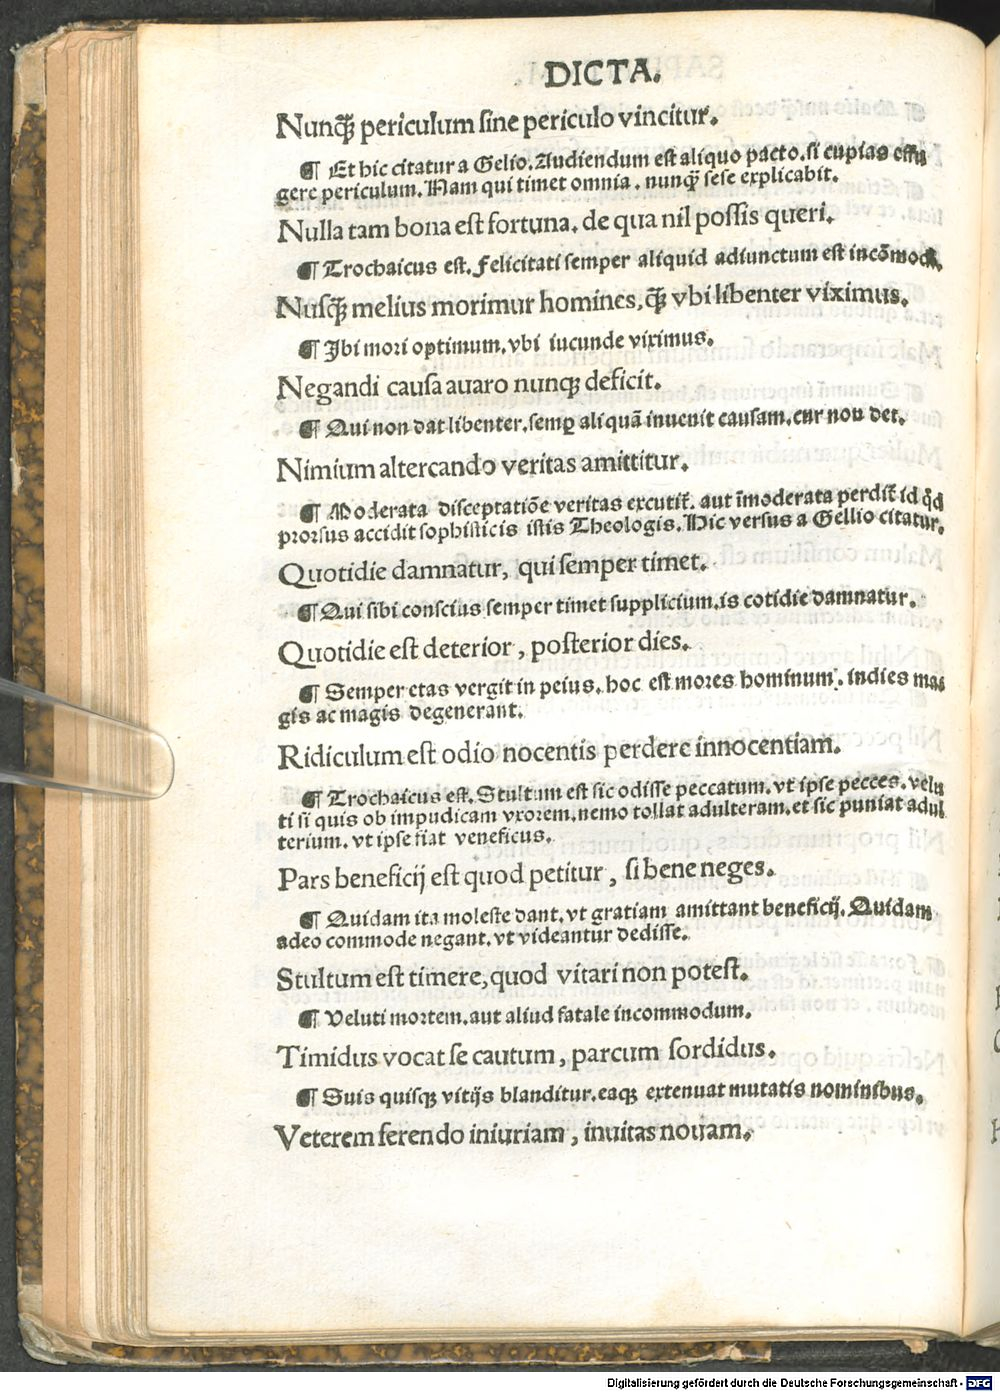 DICTA.
Nunqꝫ periculum sine periculo vincitur.
¶ Et hic citatur a Gelio. Audiendum est aliquo pacto. si cupias effu
gere periculum. Nam qui timet omnia. nunqꝫ sese explicabit.
Nulla tam bona est fortuna. de qua nil possis queri.
¶ Trochaicus est. Felicitati semper aliquid adiunctum est incōmodi.
Nusqꝫ melius morimur homines, qꝫ vbi libenter viximus.
¶ Ibi mori optimum. vbi iucunde viximus.
Negandi causa auaro nunqꝫ deficit.
¶ Qui non dat libenter. semꝑ aliquā inuenit causam. cur non det.
Nimium altercando veritas amittitur.
¶ Moderata disceptatiōe veritas excutit᷑. aut īmoderata perdit᷑ id qd̄
prorsus accidit sophisticis istis Theologis. Hic versus a Gellio citatur.
Quotidie damnatur, qui semper timet.
¶ Qui sibi conscius semper timet supplicium. is cotidie damnatur.
Quotidie est deterior, posterior dies.
¶ Semper etas vergit in peius. hoc est mores hominum. indies ma⸗
gis ac magis degenerant.
Ridiculum est odio nocentis perdere innocentiam.
¶ Trochaicus est. Stultum est sic odisse peccatum. vt ipse pecces. velu
ti si quis ob impudicam vxorem. nemo tollat adulteram. et sic puniat adul
terium. vt ipse fiat veneficus.
Pars beneficij est quod petitur, si bene neges.
¶ Quidam ita moleste dant. vt gratiam amittant beneficij. Quidam
adeo commode negant. vt videantur dedisse.
Stultum est timere, quod vitari non potest.
¶ Veluti mortem. aut aliud fatale incommodum.
Timidus vocat se cautum, parcum sordidus.
¶ Suis quisqꝫ vitijs blanditur. eaqꝫ extenuat mutatis nominibus.
Veterem ferendo iniuriam, inuitas nouam.
Digitalisierung gefördert durch die Deutsche Forschungsgemeinschaft - DFG